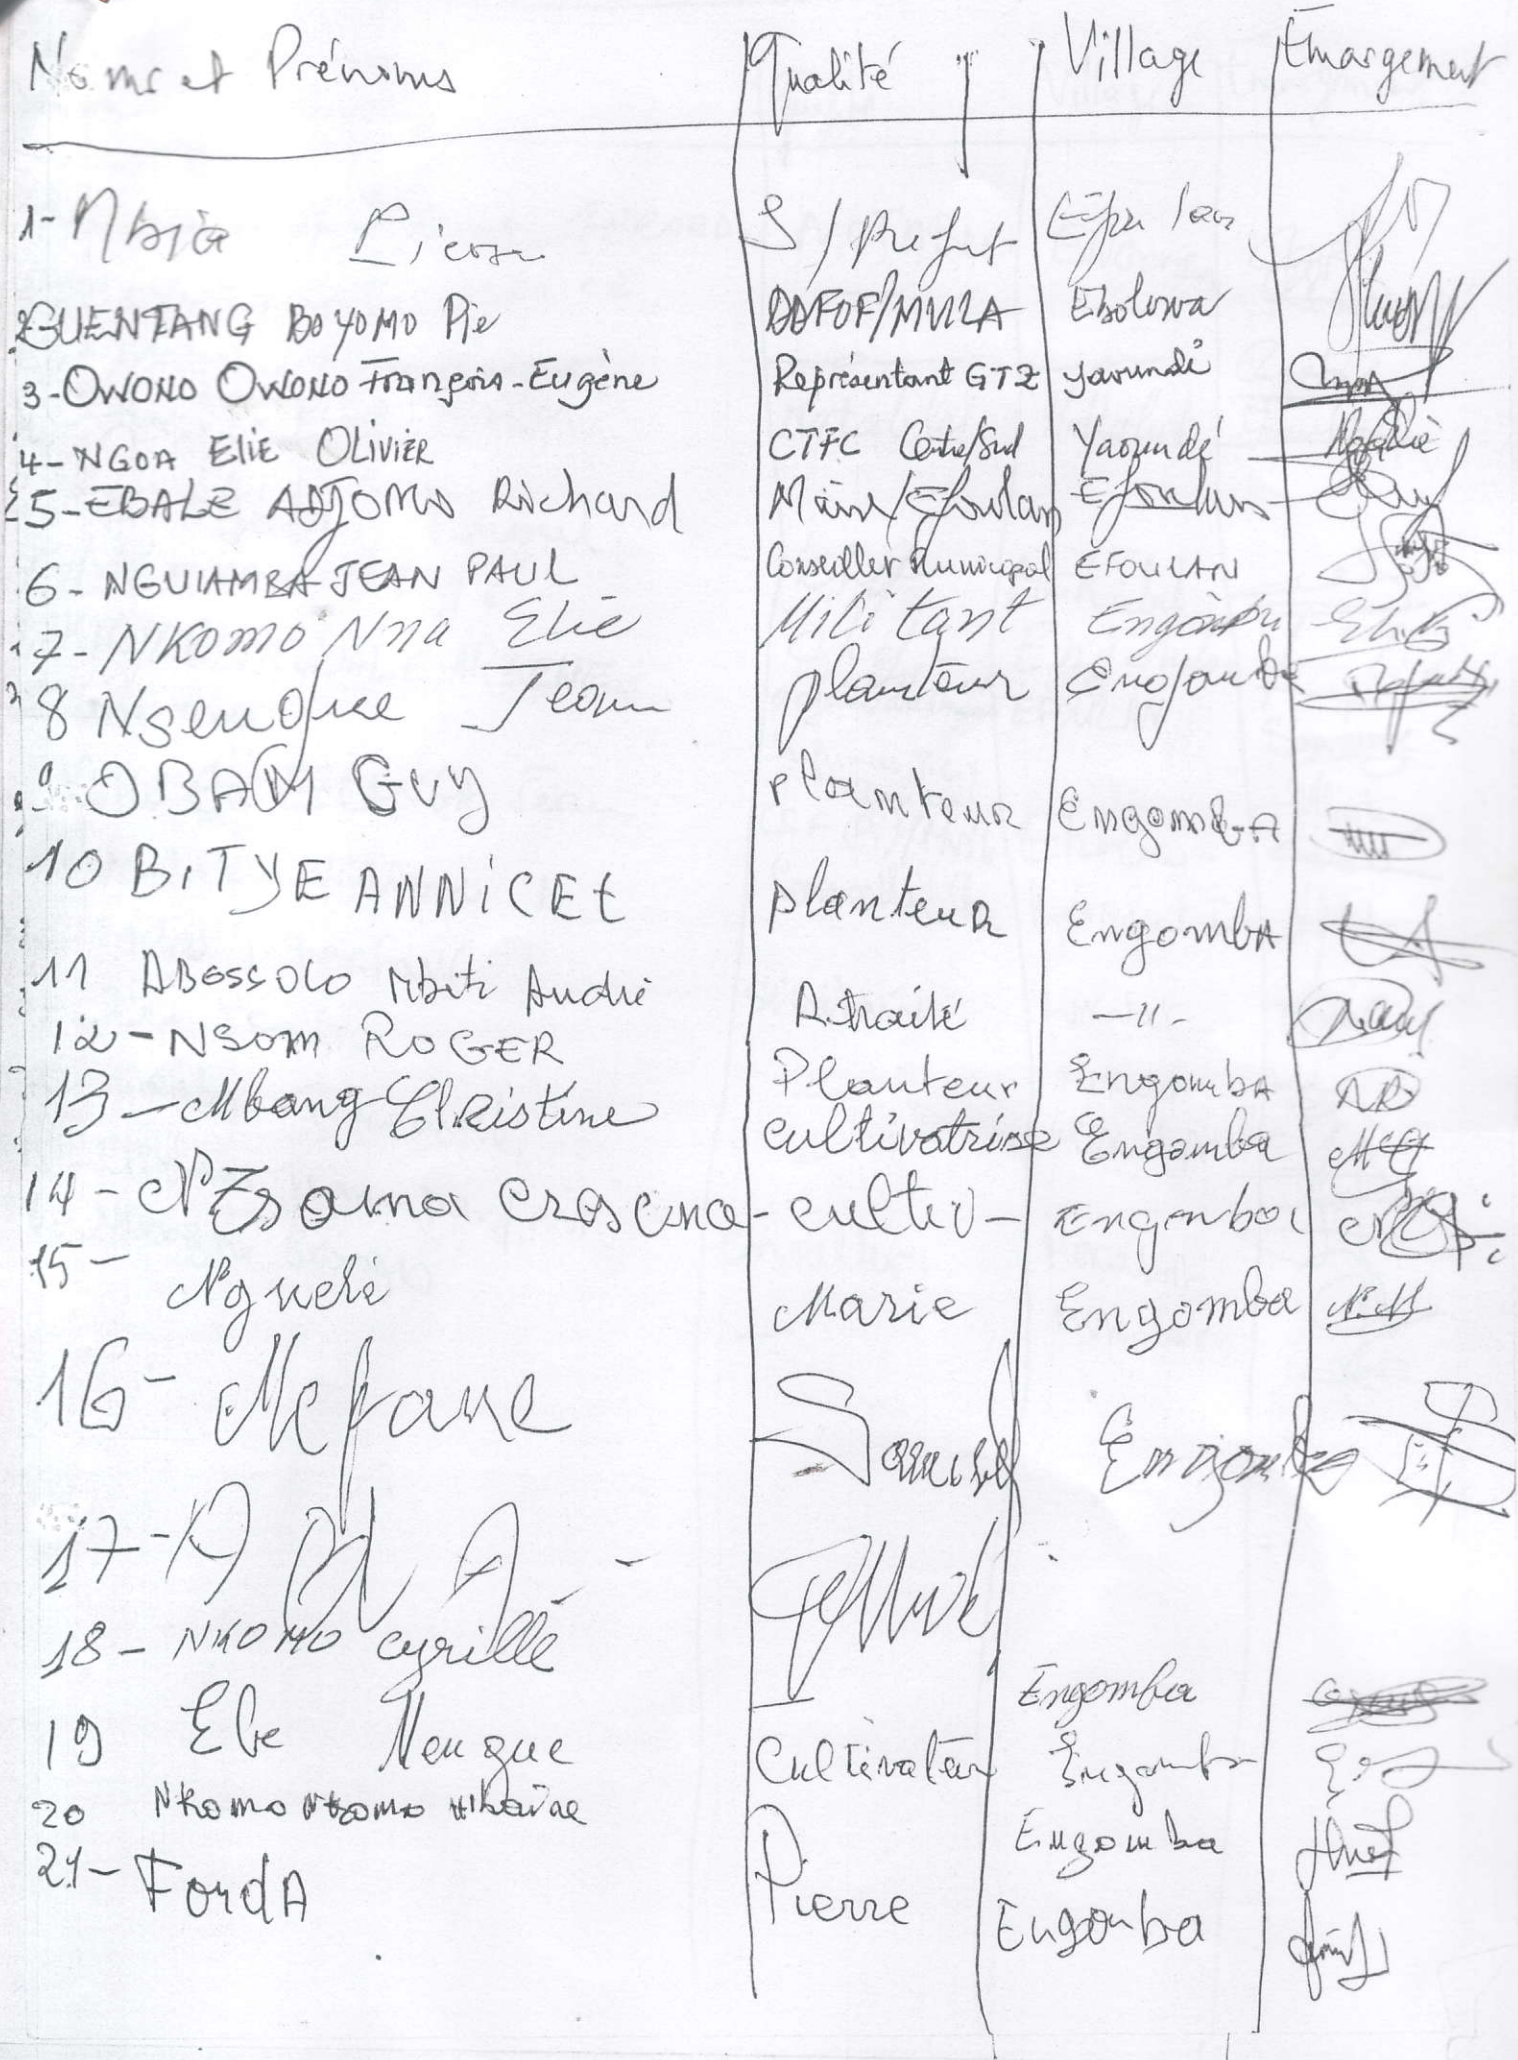 Noms et Prénoms Qualité Village Émargement
1- Mbia Pierre S/Prefet Efoulan
2 GUENTANG BOYOMO Pie DDFOF/MVILA Ebolowa
3 - OWONO OWONO François-Eugène Représentant GTZ Yaoundé
4 - NGOA ELIE OLIVIER CTFC Centre/Sud Yaoundé
5 - EBALE ADJOMO Richard Maire/Efoulan Efoulan
6 - NGUIAMBA JEAN PAUL Conseiller Municipal EFOULAN
7 - NKOMO Nna Elie Militant
8 Nsengue Jean planteur Engomba
9 OBAM GUY planteur EngombA
10 BITYE ANNICEt planteur EngombA
11 ABOSSOLO Mbiti André Retraité -11-
12 - NSOM ROGER Planteur EngombA
13 - Mbang Christine cultivatrice Engomba
14 - cultiv - Engomba
15 - Nguelé Marie Engomba N.M
16 - Mefane Samuel Engomba
17 -
18 - NKOMO Cyrille Engomba
19 Ebe Mengue Cultivateur Engomba
20 Nkomo Nkomo Engomba
21 - FondA Pierre Engomba